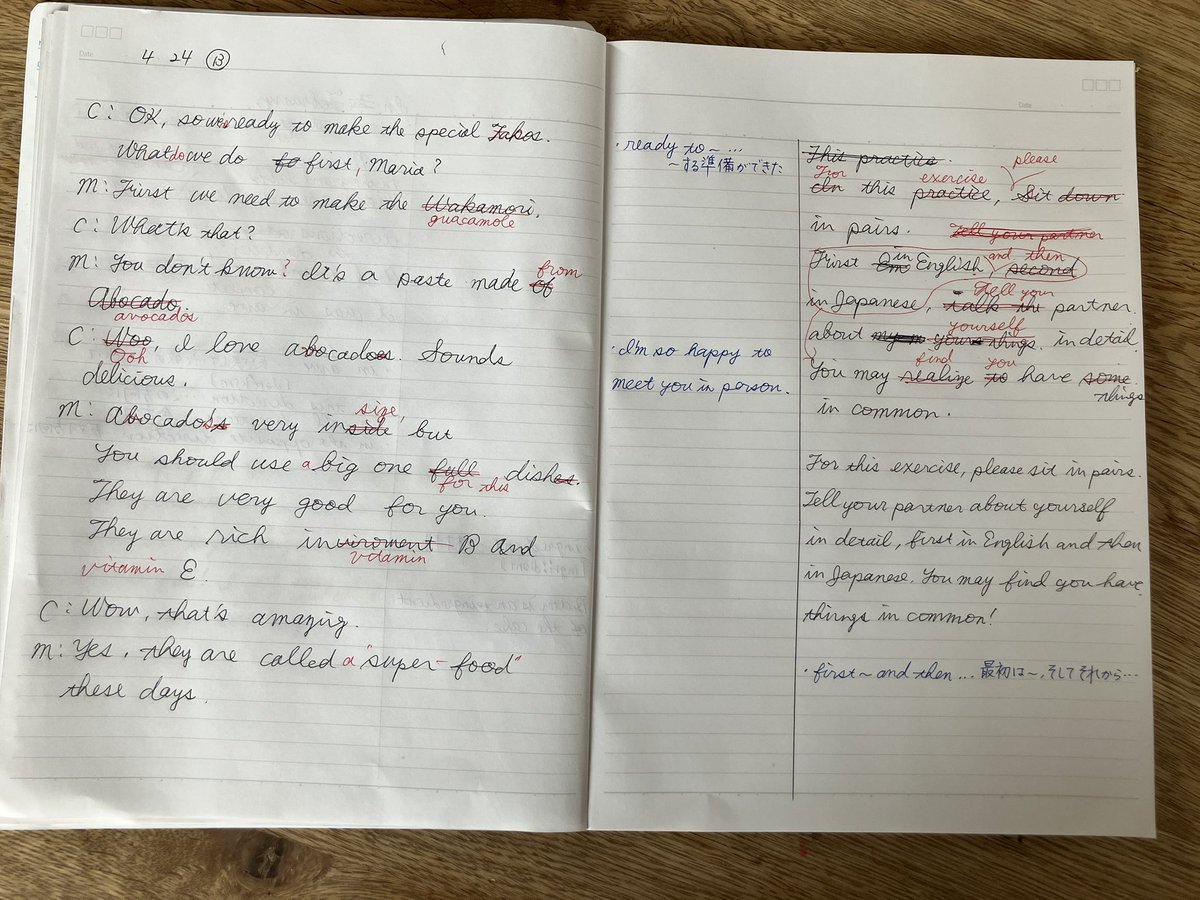 Date
4 24 B
C: OK, so we're ready to make the special Takos.
What do we do to first, Maria?
M: Frirst we need to make the Wakamori.
guacamole
C: What's that?
M: You don't know? It's a paste made of
from
Abocado.
avocados
C: Woo, I love abocados. Sounds
Ooh
delicious.
size,
M: Abocado's very inside but
You should use a big one full dishes.
for this
They are very good for you.
They are rich inveroment B and
vitamin
vitamin E.
C: Wow, that's amazing.
M: Yes, they are called a "super-food"
these days.
・ready to~…
~する準備ができた
・I'm so happy to
meet you in person.
Date
This practice.
please
For exercise
In this practice, Sit down
in pairs. Tell your partner
in and then
First English, second
Tell your
in Japanese, talk the partner
yourself
about yours things. in detail.
find you
You may realize to have some
things
in common.
For this exercise, please sit in pairs.
Tell your partner about yourself
in detail, first in English and then
in Japanese. You may find you have
things in common!
・first~and then… 最初は~、そしてそれから…